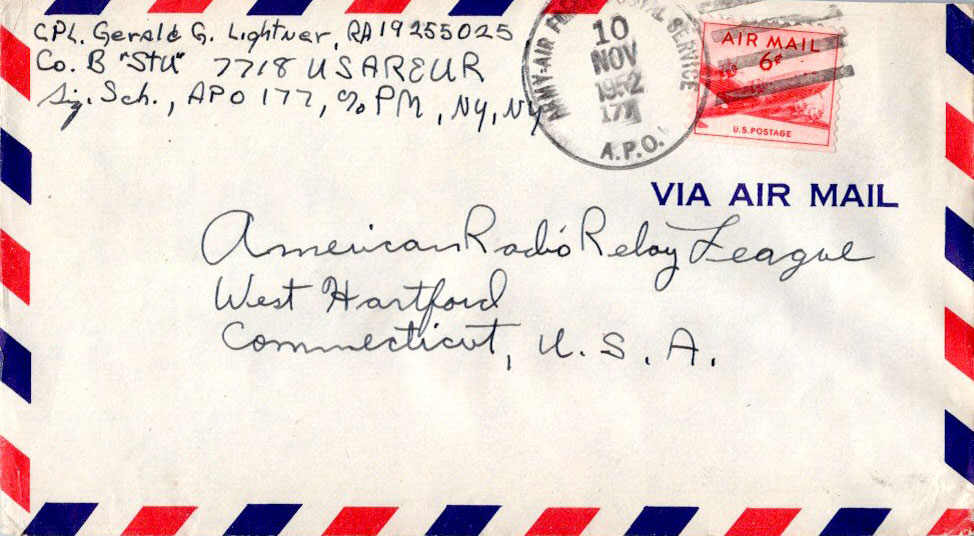 CPL. Gerald G. Lightner, RA19255025
Co. B "StU" 7718 USAREUR
Sig. Sch., APO 177, c/o PM, NY, NY
ARMY-AIR POSTAL SERVICE
10
NOV
1952
177
A.P.O.
AIR MAIL
6¢
U.S. POSTAGE
VIA AIR MAIL
American Radio Relay League
West Hartford
Connecticut, U. S. A.